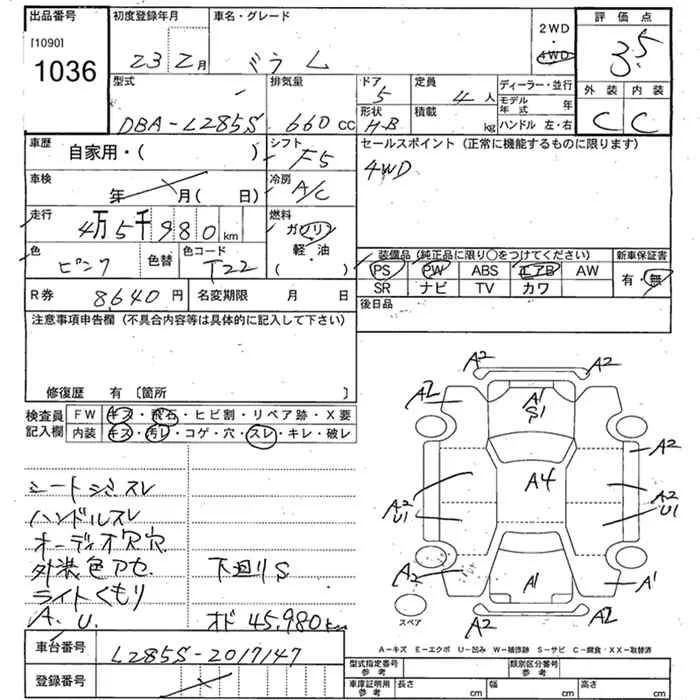 出品番号 初度登録年月 車名・グレード 2WD ・ 4WD 評価点
[1090]
1036 23 2月 ミラ 3.5
型式 排気量 ドア 定員 ディーラー・並行 外装 内装
DBA-L285S 660 CC 5 4人 モデル年式 年 C C
形状 積載
H・B kg ハンドル 左・右
車歴 自家用・( ) シフト F5 セールスポイント (正常に機能するものに限ります)
車検 年 月( 日) 冷房 A/C 4WD
走行 4万5千980km 燃料 ガソリン・軽・油 ( )
色 ピンク 色替 色コード T22
装備品 (純正品に限り〇をつけてください) 新車保証書
PS PW ABS エアB AW 有・無
SR ナビ TV カワ
R券 8640円 名変期限 月 日 後日品
注意事項申告欄 (不具合内容等は具体的に記入して下さい)
修復歴 有 〔箇所 〕
検査員記入欄 FW キズ・飛石・ヒビ割・リペア跡・X要
内装 キズ・汚レ・コゲ・穴・スレ・キレ・破レ
シートシミスレ
ハンドルスレ
オーディオ穴穴
外装色アセ. 下廻りS
ライトくもり
A. U. オド45,980km
A2 A2
A2 A1 S1
A2
A2 U1 A4 A2 U1
A2 A1 A1
A2 A2
スペア
A-キズ E-エクボ U-凹み W-補修跡 S-サビ C-腐食・XX-取替済
車台番号 L285S-2017147
登録番号
型式指定番号 参考 類別区分番号 参考
車庫証明用 参考 長さ cm 幅 cm 高さ cm